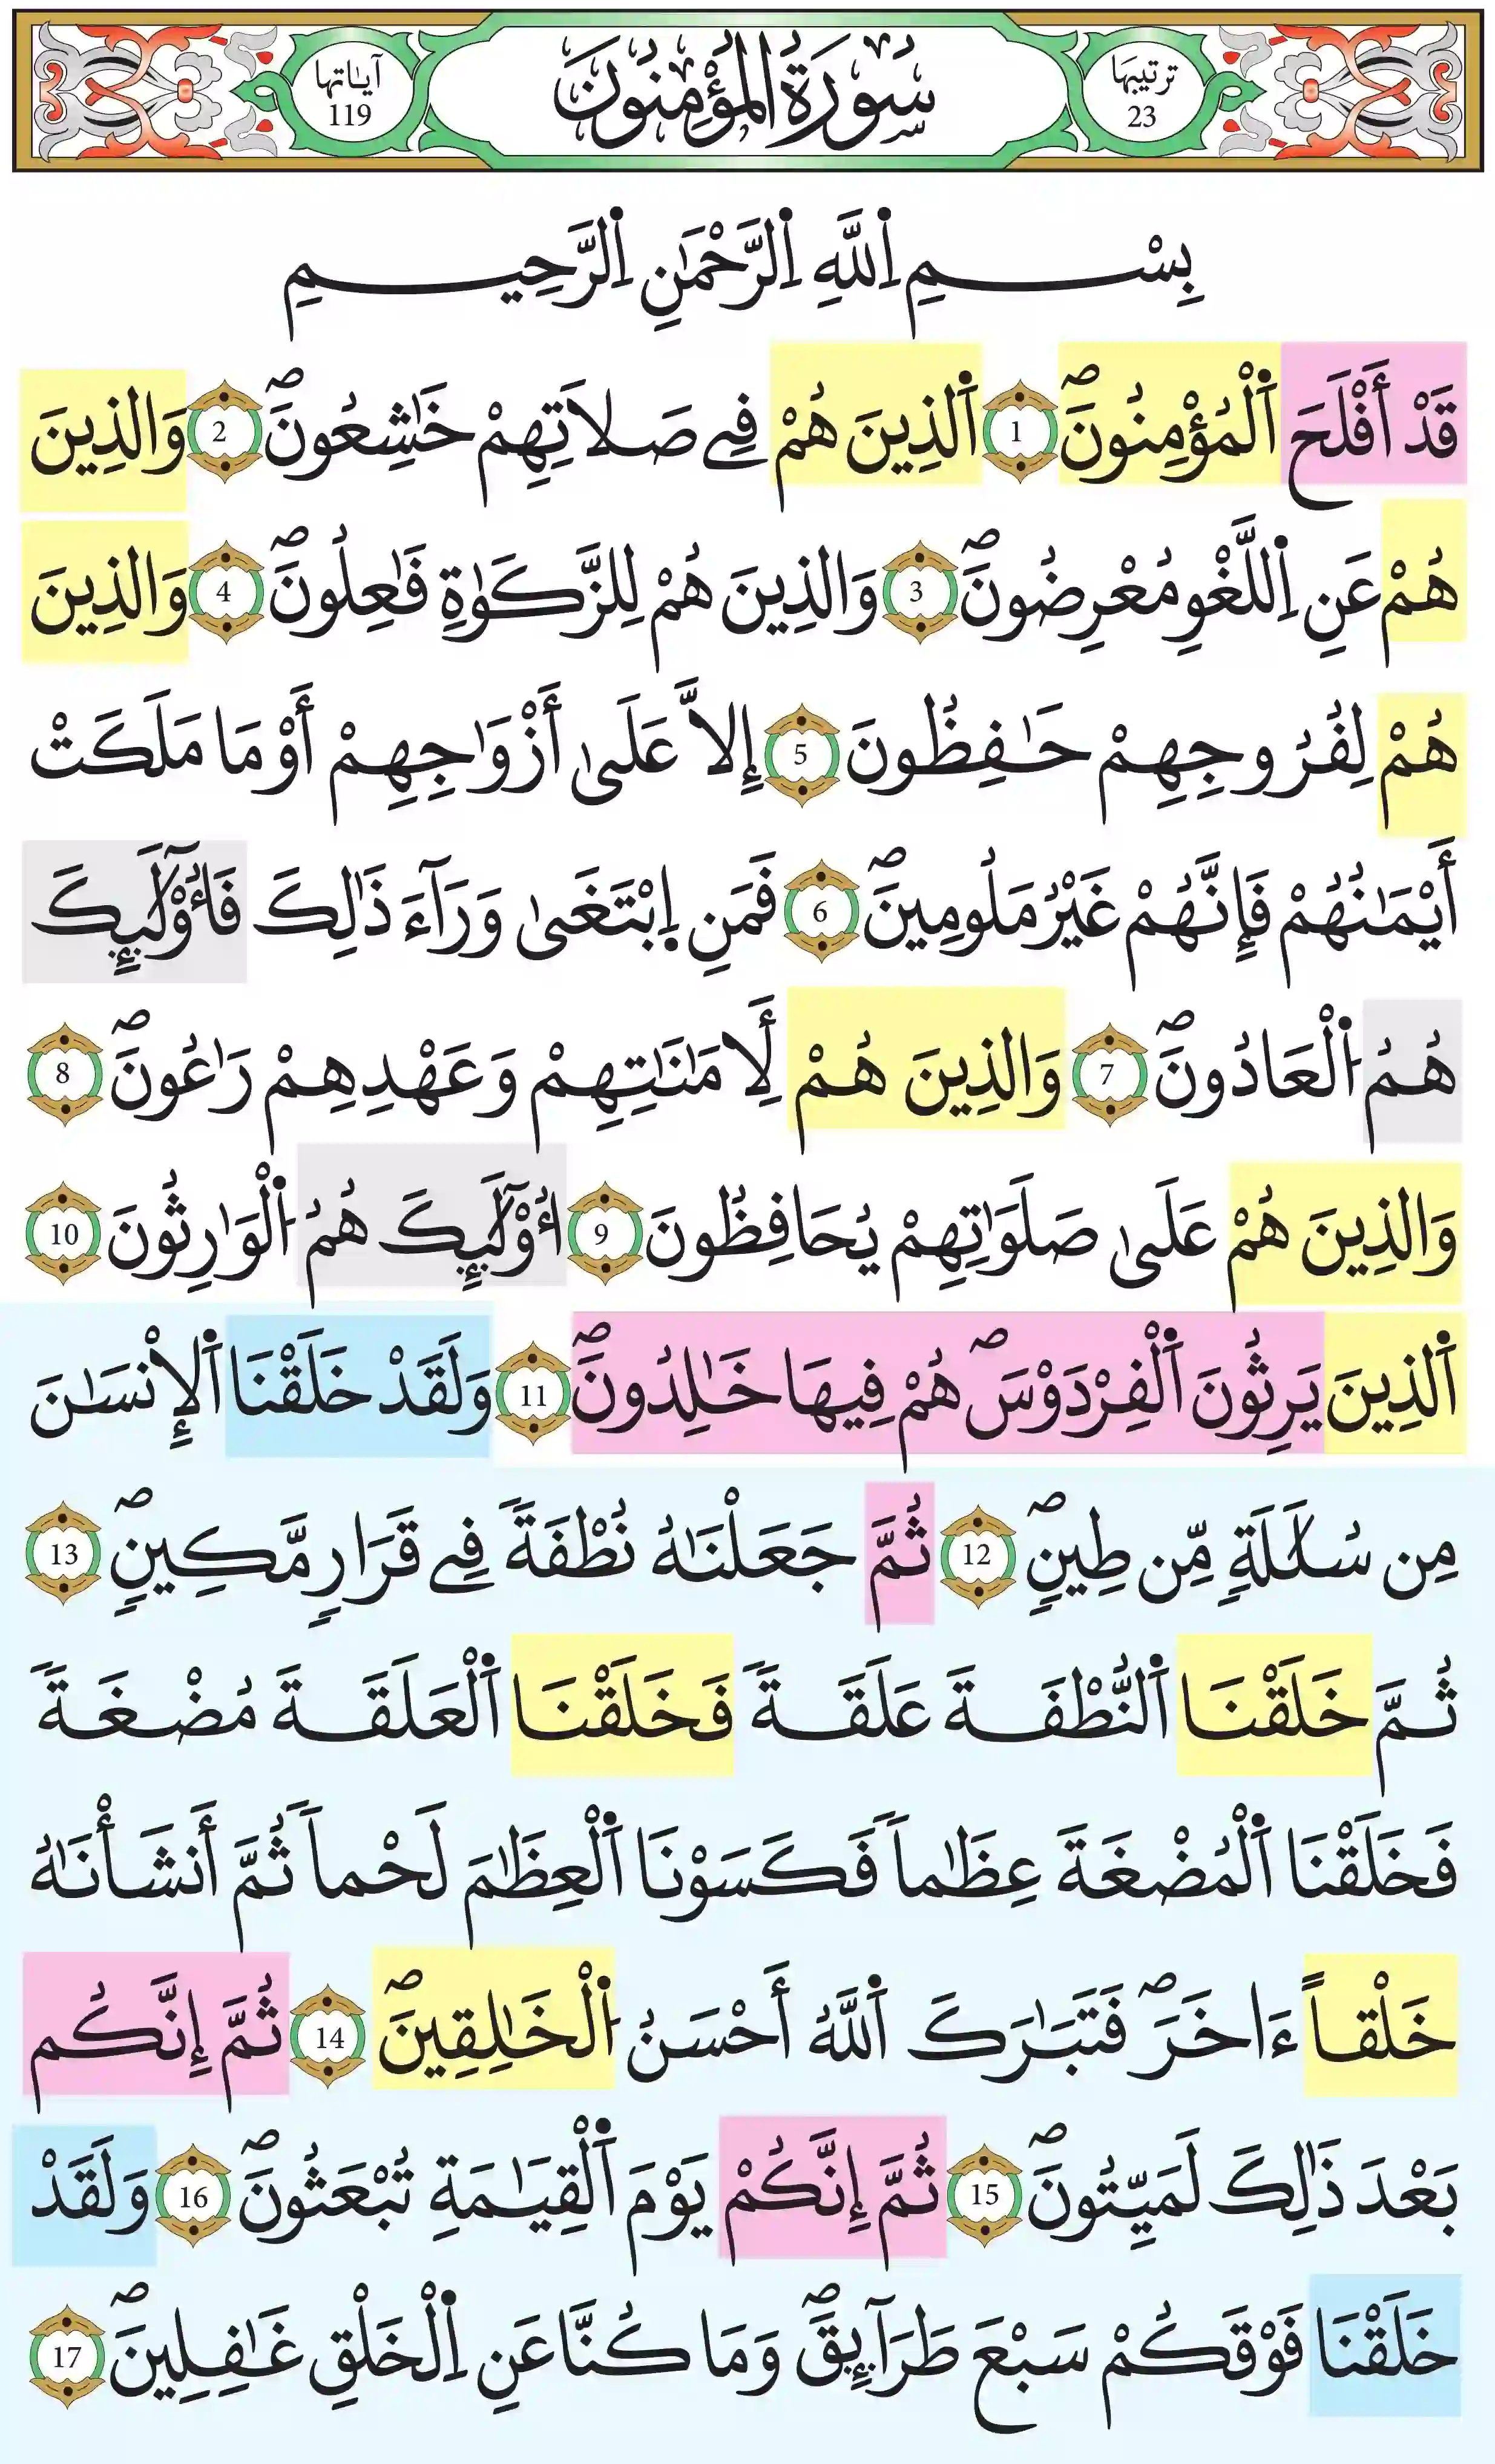 ترتيبها 23
سُورَةُ الْمُؤْمِنُونَ
آياتها 119
بِسْمِ اِ۬للَّهِ اِ۬لرَّحْمَٰنِ اِ۬لرَّحِيمِ
قَدْ أَفْلَحَ اَ۬لْمُؤْمِنُونَۖ 1 اَ۬لذِينَ هُمْ فِے صَلَاتِهِمْ خَٰشِعُونَۖ 2 وَالذِينَ
هُمْ عَنِ اِ۬للَّغْوِ مُعْرِضُونَۖ 3 وَالذِينَ هُمْ لِلزَّكَوٰةِ فَٰعِلُونَۖ 4 وَالذِينَ
هُمْ لِفُرُوجِهِمْ حَٰفِظُونَ 5 إِلَّا عَلَىٰ أَزْوَٰجِهِمْ أَوْ مَا مَلَكَتْ
أَيْمَٰنُهُمْ فَإِنَّهُمْ غَيْرُ مَلُومِينَۖ 6 فَمَنِ اِ۪بْتَغَىٰ وَرَآءَ ذَٰلِكَ فَأُوْلَٰٓئِكَ
هُمُ اُ۬لْعَادُونَۖ 7 وَالذِينَ هُمْ لِأَمَٰنَٰتِهِمْ وَعَهْدِهِمْ رَٰعُونَۖ 8
وَالذِينَ هُمْ عَلَىٰ صَلَوَٰتِهِمْ يُحَافِظُونَ 9 أُوْلَٰٓئِكَ هُمُ اُ۬لْوَٰرِثُونَ 10
اَ۬لذِينَ يَرِثُونَ اَ۬لْفِرْدَوْسَۖ هُمْ فِيهَا خَٰلِدُونَۖ 11 وَلَقَدْ خَلَقْنَا اَ۬لْإِنْسَٰنَ
مِن سُلَٰلَةٍ مِّن طِينٍۖ 12 ثُمَّ جَعَلْنَٰهُ نُطْفَةً فِے قَرَارٍ مَّكِينٍۖ 13
ثُمَّ خَلَقْنَا اَ۬لنُّطْفَةَ عَلَقَةً فَخَلَقْنَا اَ۬لْعَلَقَةَ مُضْغَةً
فَخَلَقْنَا اَ۬لْمُضْغَةَ عِظَٰماً فَكَسَوْنَا اَ۬لْعِظَٰمَ لَحْماً ثُمَّ أَنشَأْنَٰهُ
خَلْقاً ءَاخَرَۖ فَتَبَٰرَكَ اَ۬للَّهُ أَحْسَنُ اُ۬لْخَٰلِقِينَۖ 14 ثُمَّ إِنَّكُم
بَعْدَ ذَٰلِكَ لَمَيِّتُونَۖ 15 ثُمَّ إِنَّكُمْ يَوْمَ اَ۬لْقِيَٰمَةِ تُبْعَثُونَۖ 16 وَلَقَدْ
خَلَقْنَا فَوْقَكُمْ سَبْعَ طَرَآئِقَۖ وَمَا كُنَّا عَنِ اِ۬لْخَلْقِ غَٰفِلِينَۖ 17